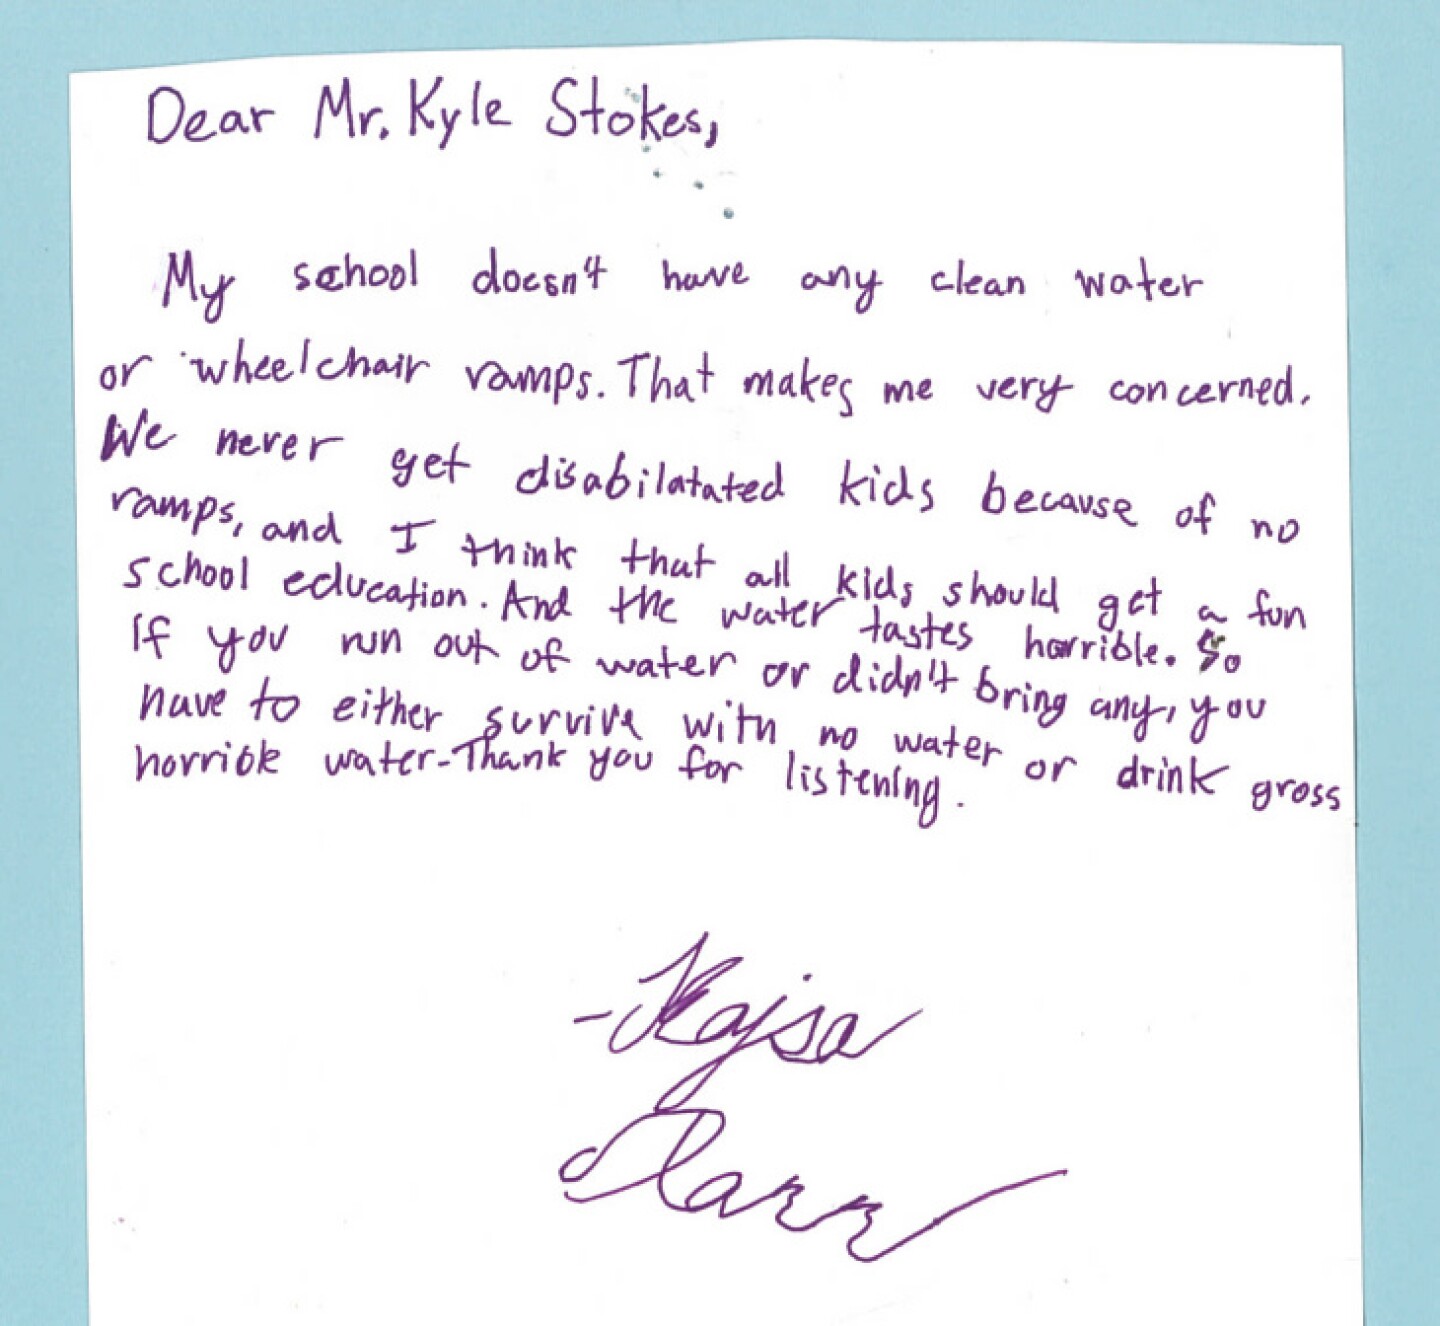 Dear Mr. Kyle Stokes,
My school doesn't have any clean water
or wheelchair ramps. That makes me very concerned.
We never get disabilatated kids because of no
ramps, and I think that all kids should get a fun
school education. And the water tastes horrible. So
if you run out of water or didn't bring any, you
have to either survive with no water or drink gross
horrible water-Thank you for listening.
-Kajsa